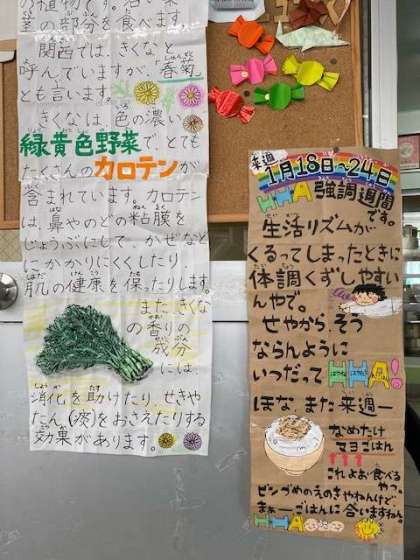 の植物です。
茎の部分を食べます。
関西では、きくなと
呼んでいますが、春菊
とも言います。
きくなは、色の濃い
緑黄色野菜で、とても
たくさんのカロテンが
含まれています。カロテン
は、鼻やのどの粘膜を
じょうぶにして、かぜなど
にかかりにくくしたり
肌の健康を保ったりします。
また、きくな
の香りの
成分
には、
消化を助けたり、せきや
たん(痰)をおさえたりする
効果があります。
来週
1月18日~24日
HHA強調週間
です。
生活リズムが
くるってしまったときに
体調くずしやすい
んやで。
せやから、そう
ならんように
いつだってHHA!
ほな、また来週ー
なめたけ
マヨごはん
これよお食べる
やつ。
ビンづめのえのきやねんけど
まぁーごはんに合いますねん。
HHA